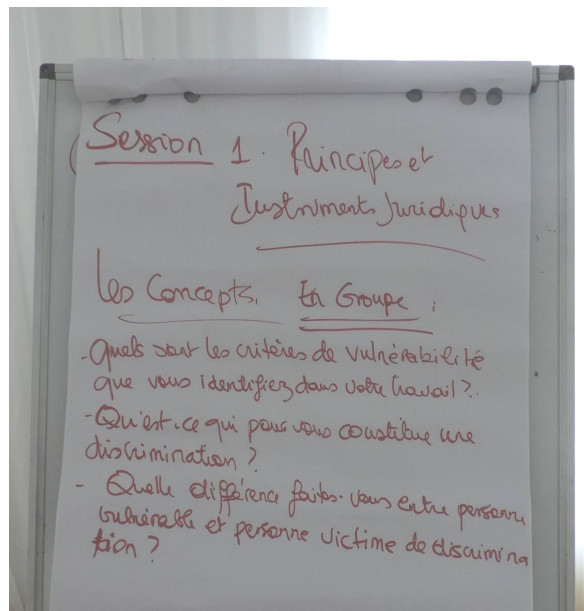 Session 1. Principes et
Instruments Juridiques
Les Concepts. En Groupe :
- Quels sont les critères de vulnérabilité
que vous identifiez dans votre travail ?
- Qu'est-ce qui pour vous constitue une
discrimination ?
- Quelle différence faites-vous entre personne
vulnérable et personne victime de discrimina
tion ?